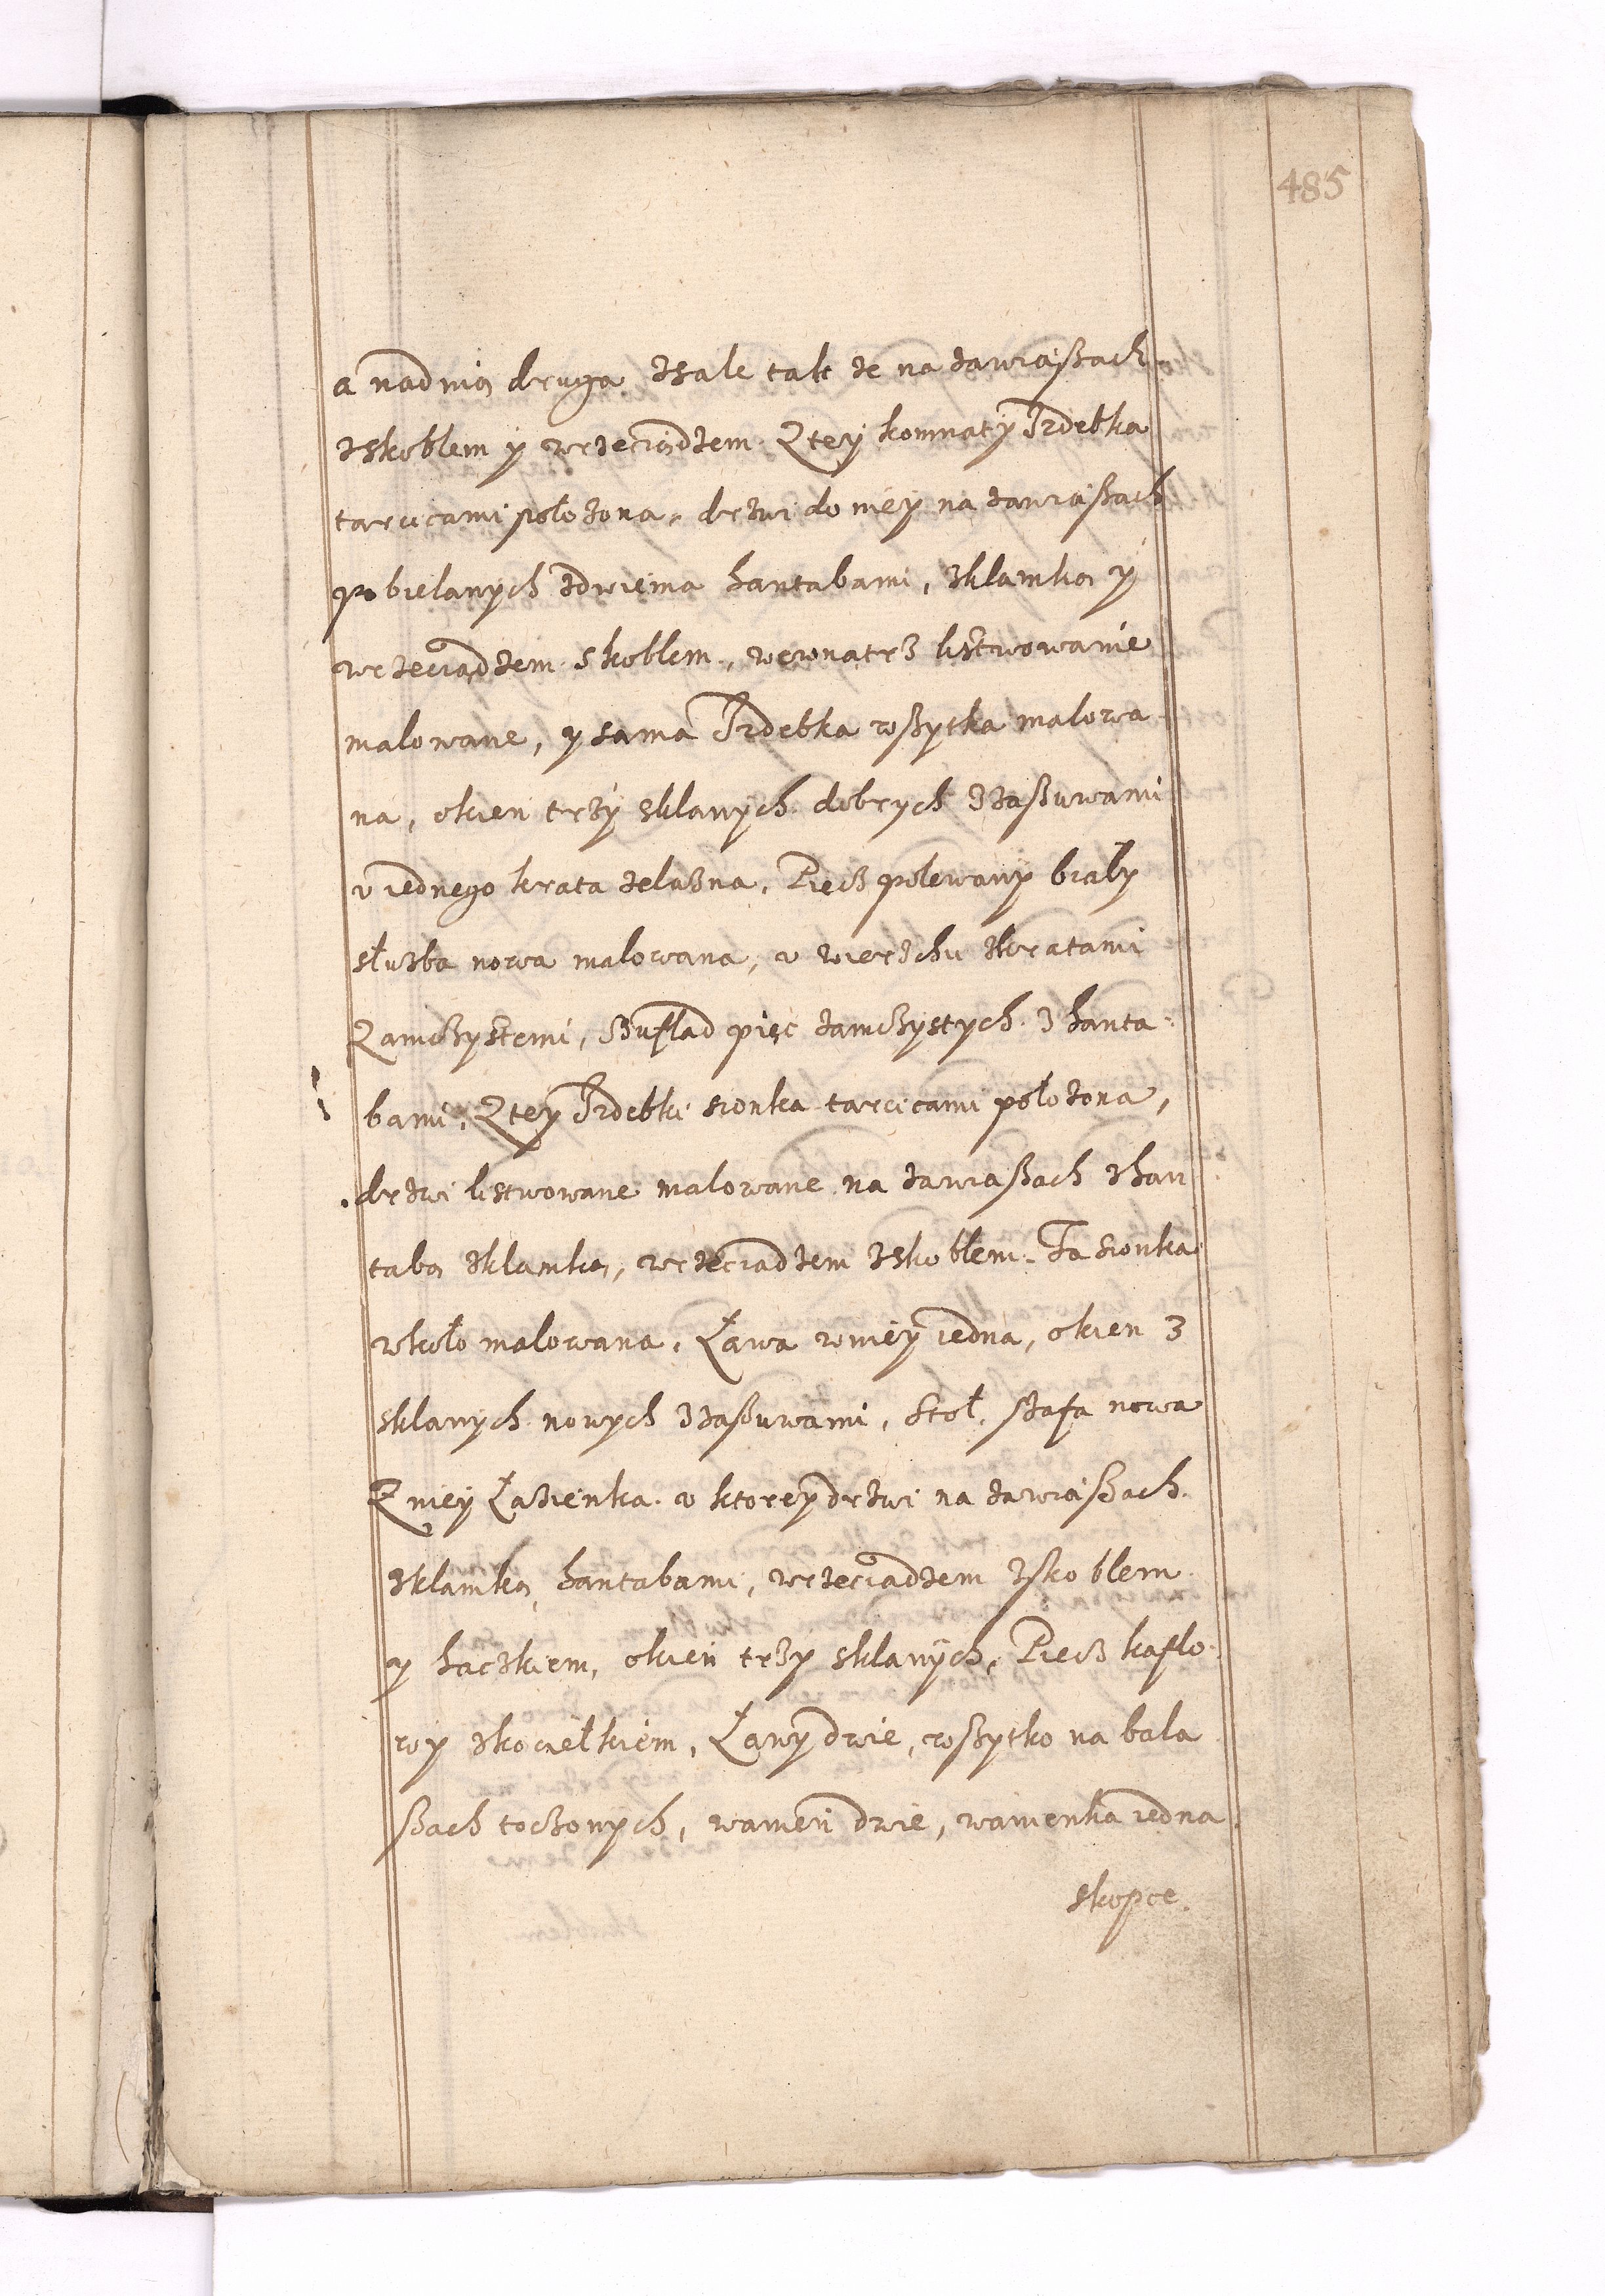 485
a nad nią druga. zsale takze na zawiaßach
zskoblem y wrzeciądzem. Z tey komnaty Izdebka
tarcicami położona, drzwi do niey na zawiaßach
pobielanych zdwiema hantabami, zklamką y
wrzeciądzem skoblem, wewnatrz listwowanie
malowane, y sama Izdebka wßytka malowa
na, okien trzy sklanych dobrych zzaßuwami
v iednego krata zelazna, Piecz polewany biały
służba nowa malowana, v wierzchu zkratami
Zamczystemi, Szuflad pięc zamczystych z hanta
bami, Z tey Izdebki sionka tarcicami położona,
drzwi listwowane malowane na zawiaßach z han
tabą zklamką, wrzeciadzem zskoblem. Ta sionka
wkoło malowana, Ława wniey iedna, okien 3
sklanych nowych zzaßuwami, Stoł, szafa nowa
Z niey Łazienka v ktorey drzwi na zawiaßach
zklamką, hantabami, wrzeciadzem zskoblem
y haczkiem, okien trzy sklanych, Piecz kaflo
wy zkociełkiem, Ławy dwie, wßytko na bala
ßach toczonych, wanien dwie, wanienka iedna
skopce.